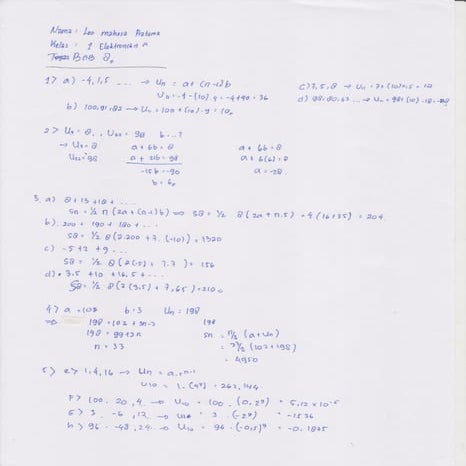 Nama : Leo mahesa Pratama
Kelas : 1 Elektronika A
Tugas BAB 8.
1) a) -4, 1, 5 ... → Un = a + (n-1) b
U10 = -4 - (10) . 4 = -4 + 40 = 36
b) 100, 91, 82 → U10 = 100 + (10) . -9 = 10
2) U7 = 8 . , U22 = 98 b ... ?
→ U7 = 8 a + 6b = 8 a + 6b = 8
U22 = 98 a + 21b = 98 a + 6(6) = 8
-15b = -90 a = -28
b = 6
3. a) 8 + 13 + 18 + ...
Sn = 1/2 n (2a + (n-1) b) ⇒ S8 = 1/2 8 (2a + 7.5) = 4 (16+35) = 204
b) 200 + 190 + 180 + ...
S8 = 1/2 8 (2.200 + 7. (-10)) = 1320
c) -5 + 2 + 9 ...
S8 = 1/2 8 (2(-5) + 7.7) = 156
d) 3,5 + 10 + 16,5 + ...
S8 = 1/2 8 (2 (3,5) + 7, 6,5) = 210
4) a = 102 b = 3 Un = 198
⇒ 198 = 102 + 3n-3 198
198 = 99 + 3n Sn = n/2 (a + Un)
n = 33 = 33/2 (102 + 198)
= 4950
5) e) 1, 4, 16 → Un = a.r^n-1
U10 = 1. (4^9) = 262,144
F) 100. 20, 4. → U10 = 100 . (0,2^9) = 5,12 x 10^-5
G) 3. -6, 12. → U10 = 3 . (-2^9) = -1536
h) 96 . -48, 24. → U10 = 96 . (-0,5)^9 = -0.1875